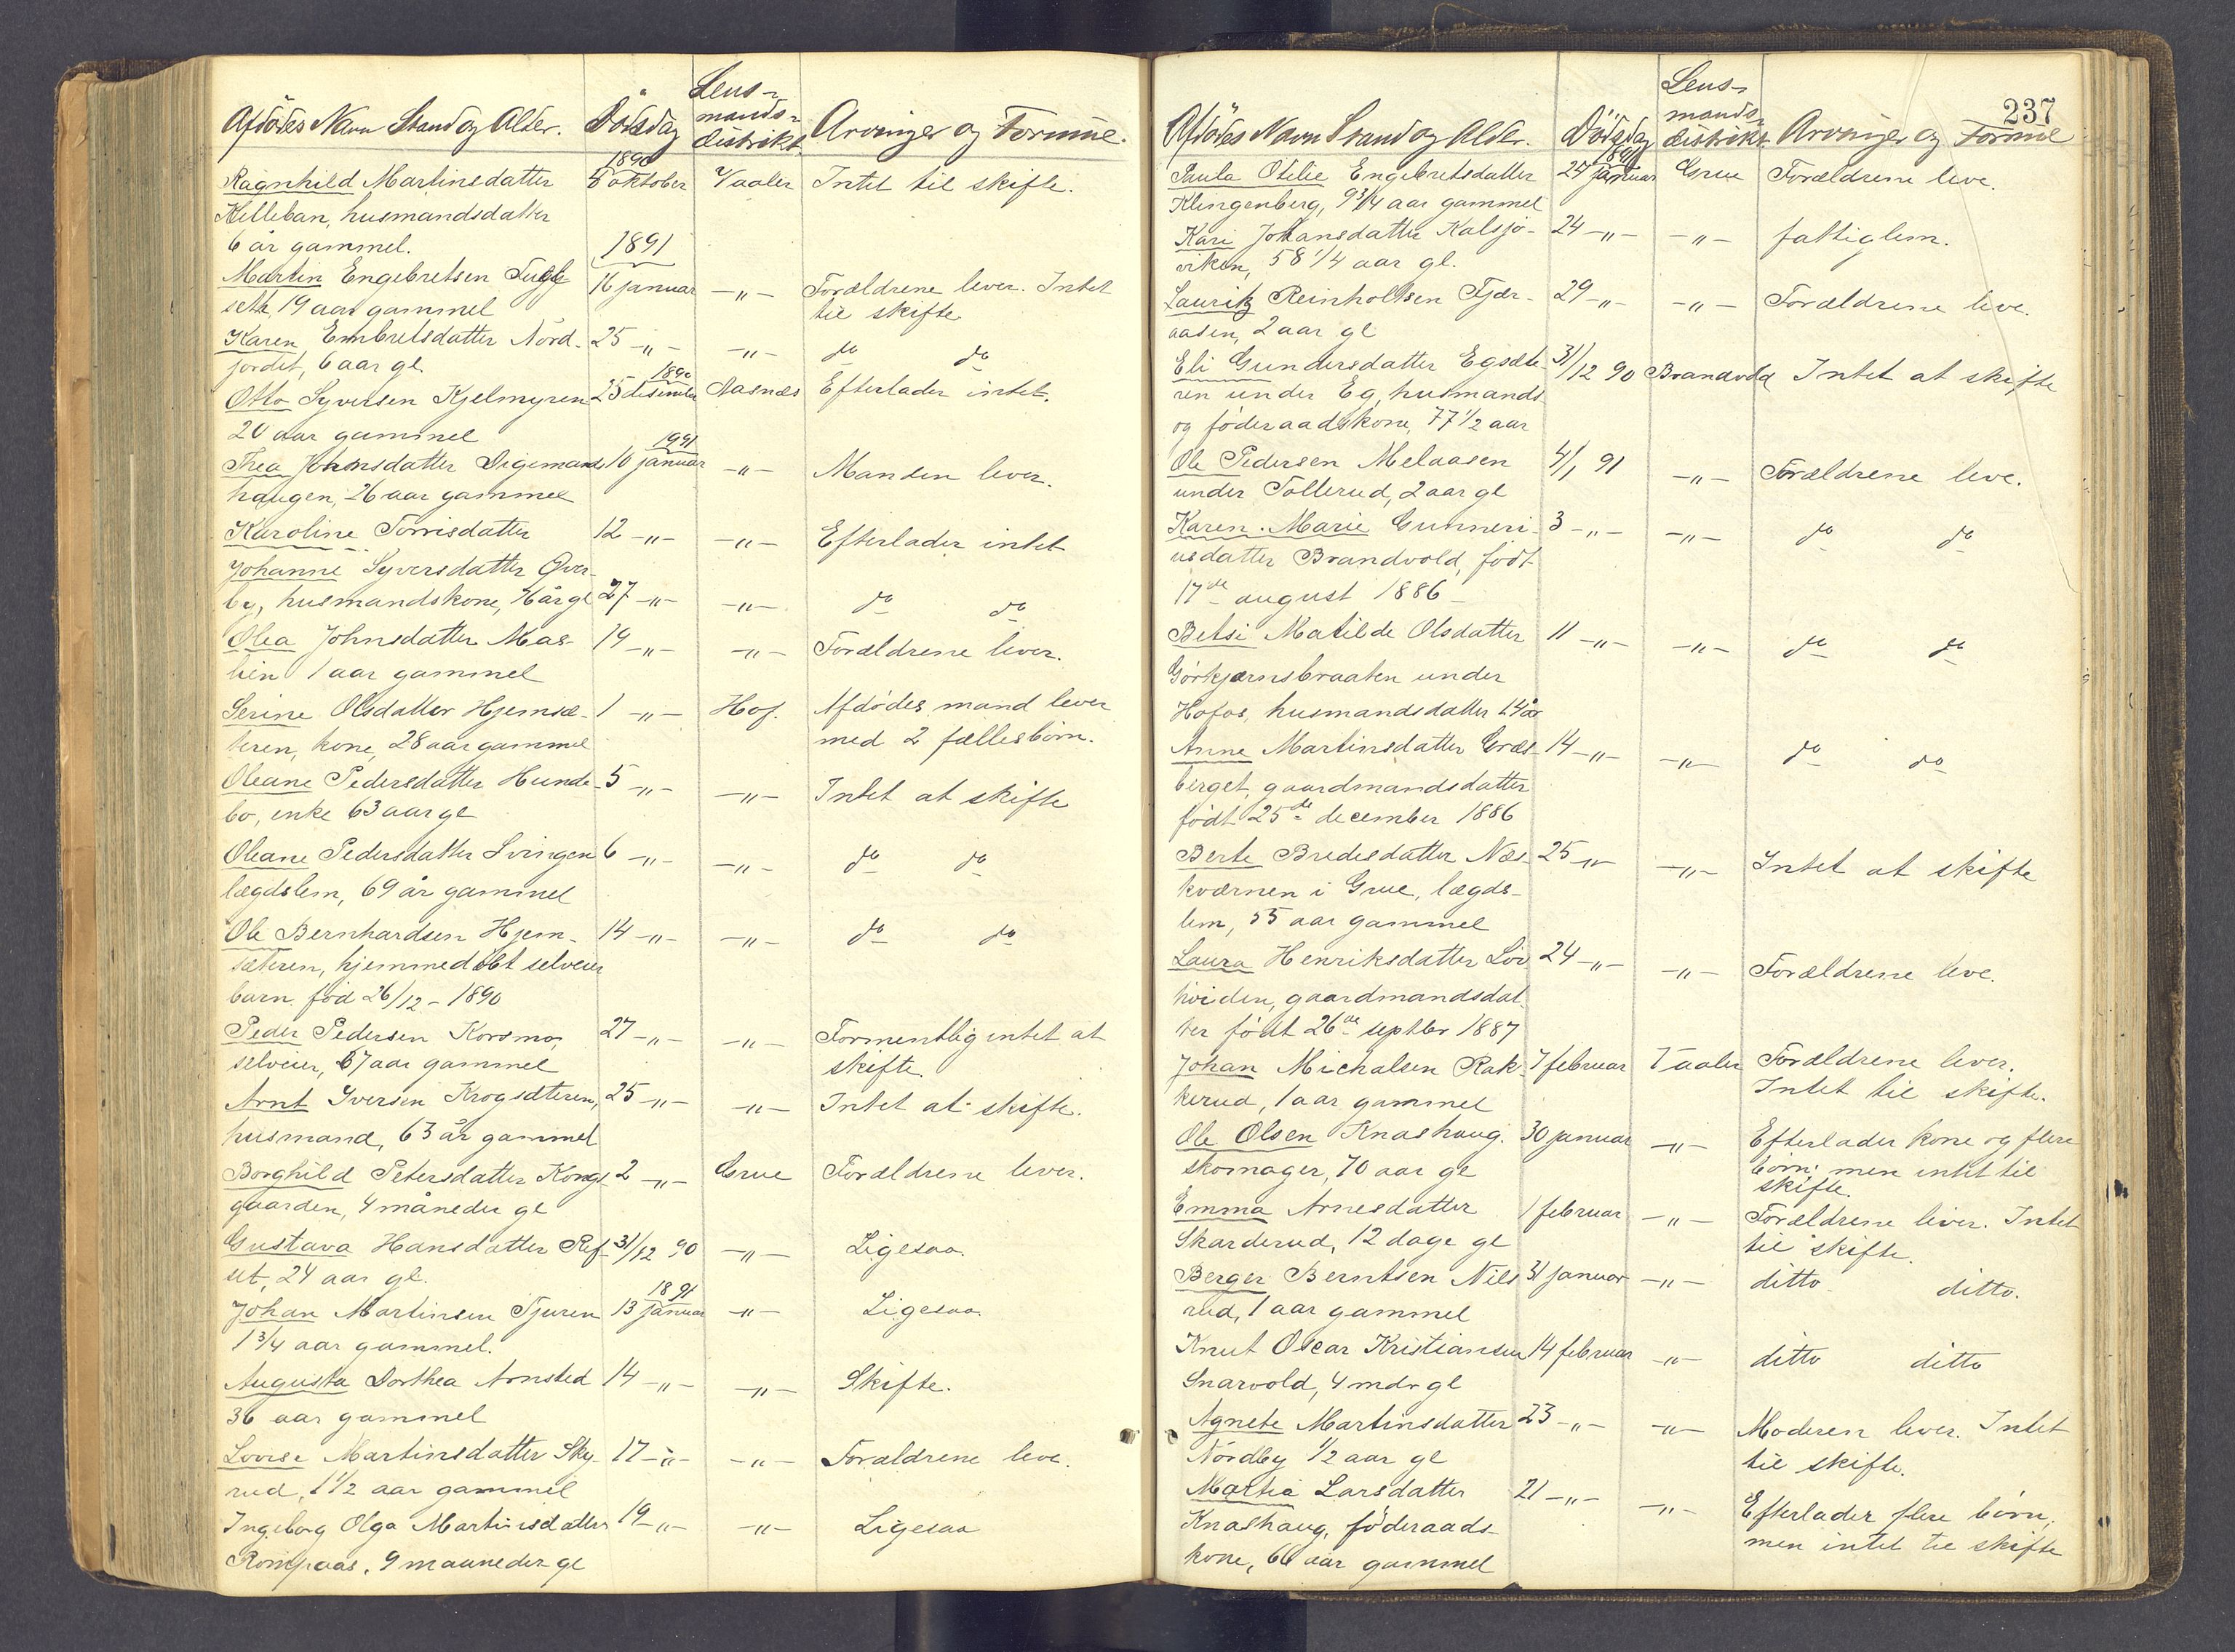 Afdödes Navn Stand og Alder. Dödsdag Lens-
mands-
distrikt. Arvinger og Formue.
Ragnhild Martinsdatter 1890 8 oktober Vaaler Intet til skifte.
Kelleban, husmandsdatter
6 år gammel. 1891
Martin Engebretsen 16 januar -„- Forældrene lever. Intet
19 aar gammel til skifte
Karen Embretsdatter Nord- 25 -„- -„- do do
jordet, 6 aar gl.
Otto Syversen Kjelmyren 1890 25 desember Aasnes Efterlader intet.
20 aar gammel
Thea Johnsdatter Digemands 1891 10 januar -„- Manden lever.
haugen, 26 aar gammel
Karoline Torrisdatter 12 -„- -„- Efterlader intet
Johanne Syversdatter Over-
by, husmandskone, år gl 27 -„- -„- do do
Olea Johnsdatter Mas- 19 -„- -„- Forældrene lever.
lien 1 aar gammel
Serine Olsdatter Hjemsæ- 1 -„- Hof. Afdödes mand lever
teren, kone, 28 aar gammel med 2 fællesbörn.
Oleane Pedersdatter Hunde- 5 -„- -„- Intet at skifte
bo, enke 63 aar gl
Oleane Pedersdatter Svingen 6 -„- -„- do do
lægdslem, 69 år gammel
Ole Bernhardsen Hjem- 14 -„- -„- do do
sæteren, hjemmedöbt selveier
barn född 26/12 - 1890
Peder Pedersen Korsmo, 27 -„- -„- Formentlig intet at
selveier, 67 aar gammel skifte.
Arnt Iversen Krogsæteren, 25 -„- -„- Intet at skifte.
husmand, 63 år gammel
Borghild Petersdatter Kongs- 2 -„- Grue Forældrene lever.
gaarden, 4 måneder gl
Gustava Hansdatter Ref- 31/12 90 -„- Ligesaa.
set, 24 aar gl.
Johan Martinsen Tjuren 1891 13 januar -„- Ligesaa
1 3/4 aar gammel.
Augusta Dorthea Arnsted 14 -„- -„- Skifte.
36 aar gammel
Lovise Martinsdatter Sky- 17 -„- -„- Forældrene leve.
rud, 1 1/2 aar gammel
Ingeborg Olga Martinsdatter 19 -„- -„- Ligesaa
Rompaas, 9 maaneder gl
237
Afdödes Navn Stand og Alder. Dödsdag Lens-
mands-
distrikt Arvinger og Formue
Paula Otelie Engebretsdatter 1891 24 januar Grue Forældrene leve.
Klingenberg, 9 3/4 aar gammel
Kari Johansdatter Kalsjö- 24 -„- -„- fattiglem.
viken, 58 1/4 aar gl.
Lauritz Reinholtsen Tjær- 29 -„- -„- Forældrene leve.
aasen, 2 aar gl
Eli Gundersdatter Egsæte- 31/12 90 Brandvold Intet at skifte
ren under Eg, husmands
og föderaadskone, 77 1/2 aar
Ole Pedersen Melaasen 4/1 91 -„- Forældrene leve.
under Tollerud, 2 aar gl
Karen Marie Gunneri- 3 -„- -„- do do
usdatter Brandvold, født
17de august 1886
Betsi Matilde Olsdatter 11 -„- -„- do do
Görkjærnsbraaten under
Hofos, husmandsdatter 14 år
Anne Martinsdatter Græs- 14 -„- -„- do do
berget, gaardmandsdatter
född 25de december 1886
Berte Bredesdatter Næs- 25 -„- -„- Intet at skifte
kværnen i Grue, lægds-
lem, 55 aar gammel
Laura Henriksdatter Löv 24 -„- -„- Forældrene leve.
hviden, gaardmandsdat-
ter född 26de septbr 1887
Johan Michalsen Rak- 7 februar Vaaler Forældrene lever.
kerud, 1 aar gammel Intet til skifte.
Ole Olsen Knashaug. 30 januar -„- Efterlader kone og flere
skomager, 70 aar gl börn, men intet til
skifte.
Emma Arnesdatter 1 februar -„- Forældrene lever. Intet
Skarderud, 12 dage gl til skifte.
Berger Berntsen Nils- 31 januar -„- ditto ditto.
rud, 1 aar gammel
Knut Oscar Kristiansen 14 februar -„- ditto ditto
Snarvold, 4 mdr gl
Agnete Martinsdatter 23 -„- -„- Moderen lever. Intet
Nordby 1/2 aar gl til skifte.
Martia Larsdatter 21 -„- -„- Efterlader flere börn,
Knashaug, föderaads- men intet til skifte
kone, 66 aar gammel